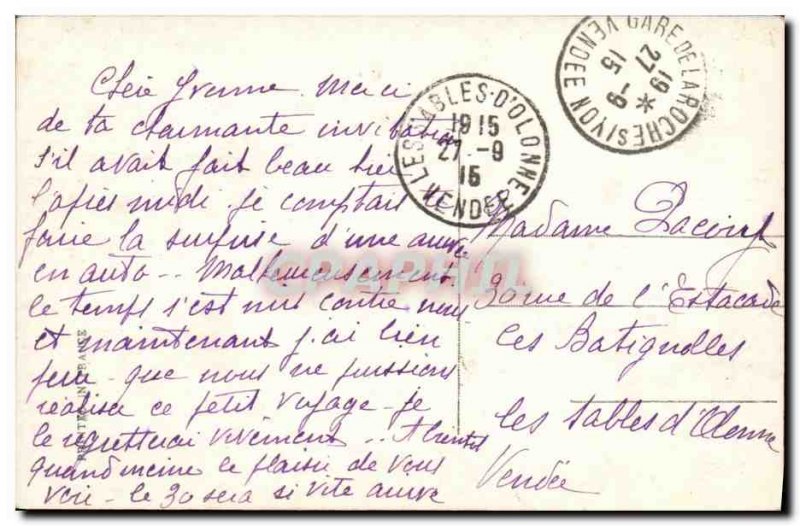 Chère Yvonne. Merci
de ta charmante invitation
s'il avait fait beau hier
l'après midi je comptais te
faire la surprise d'une arrivée
en auto.. Malheureusement
le temps s'est mis contre nous
et maintenant j'ai bien
peur que nous ne puissions
réaliser ce petit voyage je
le regretterai vivement.. A bientôt
quand même le plaisir de vous
voir - le 30 sera si vite arrivé
LES SABLES-D'OLONNE
1915
27 -9
15
VENDEE
GARE DE LA ROCHE S/YON VENDEE
1915
27 -9
15
Madame
30 rue de l'Estacade
Les Batignolles
les Sables d'Olonne
Vendée
CPAPHIL